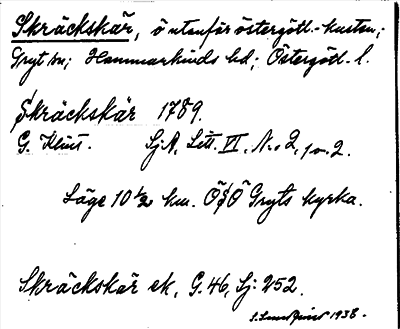 Skräckskär, ö utanför östergötl.-kusten;
Gryt sn; Hammarkinds hd; Östergötl. l.
Skräckskär 1789.
G. Klint. Sj.A. Litt. VI, No. 2, 2.
Läge 10 ½ km. ÖSÖ Gryts kyrka.
Skräckskär ek, G. 46, Sj: 252.
1938.